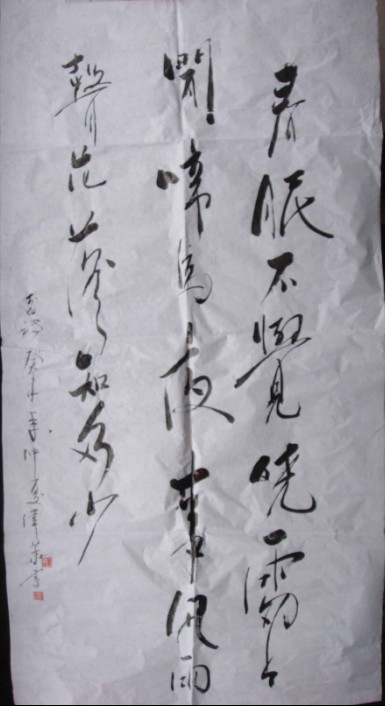 春眠不覺曉處々
聞啼鳥夜來風雨
聲花落知多少
古詩癸未年仲夏書